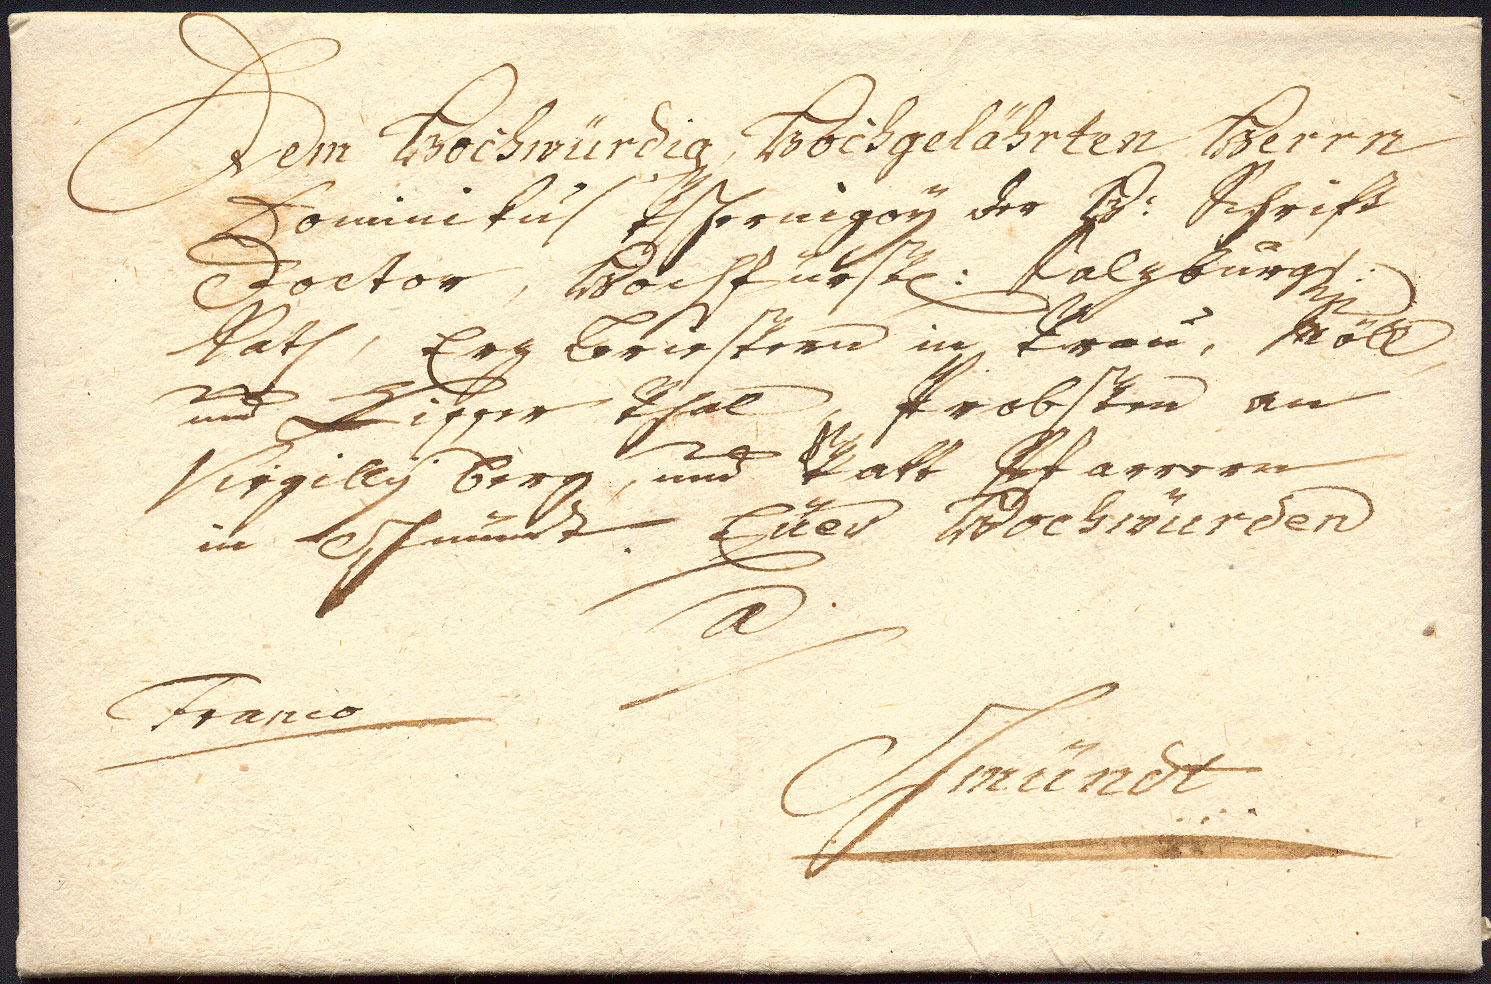 Dem Hochwürdig, Hochgelährten Herrn
Dominikus Tschernigoÿ der H: Schrift
Doctor, Hochfürstl: Salzburgs:
Rath, Erz Priestern in Trau, Möll
und Liesser Thal, Probsten an
Virgilly Berg, und Statt Pfarrern
in Gmündt. Euer Hochwürden
a
Franco
Gmündt